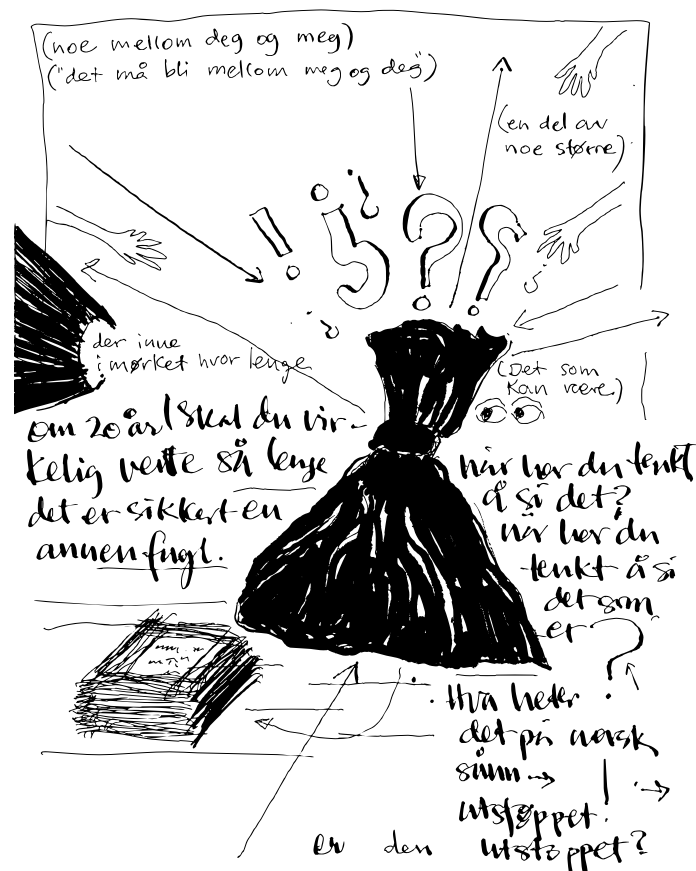 (noe mellom deg og meg)
("det må bli mellom meg og deg")
(en del av
noe større)
! ? ? ? ?
der inne
i mørket hvor lenge
(Det som
kan være)
om 20 år/skal du vir-
kelig vente så lenge
det er sikkert en
annen fugl.
når har du tenkt
å si det?
når har du
tenkt å si
det som
er ?
Hva heter
det på norsk
sånn →
utstøppet!
er den utstoppet?